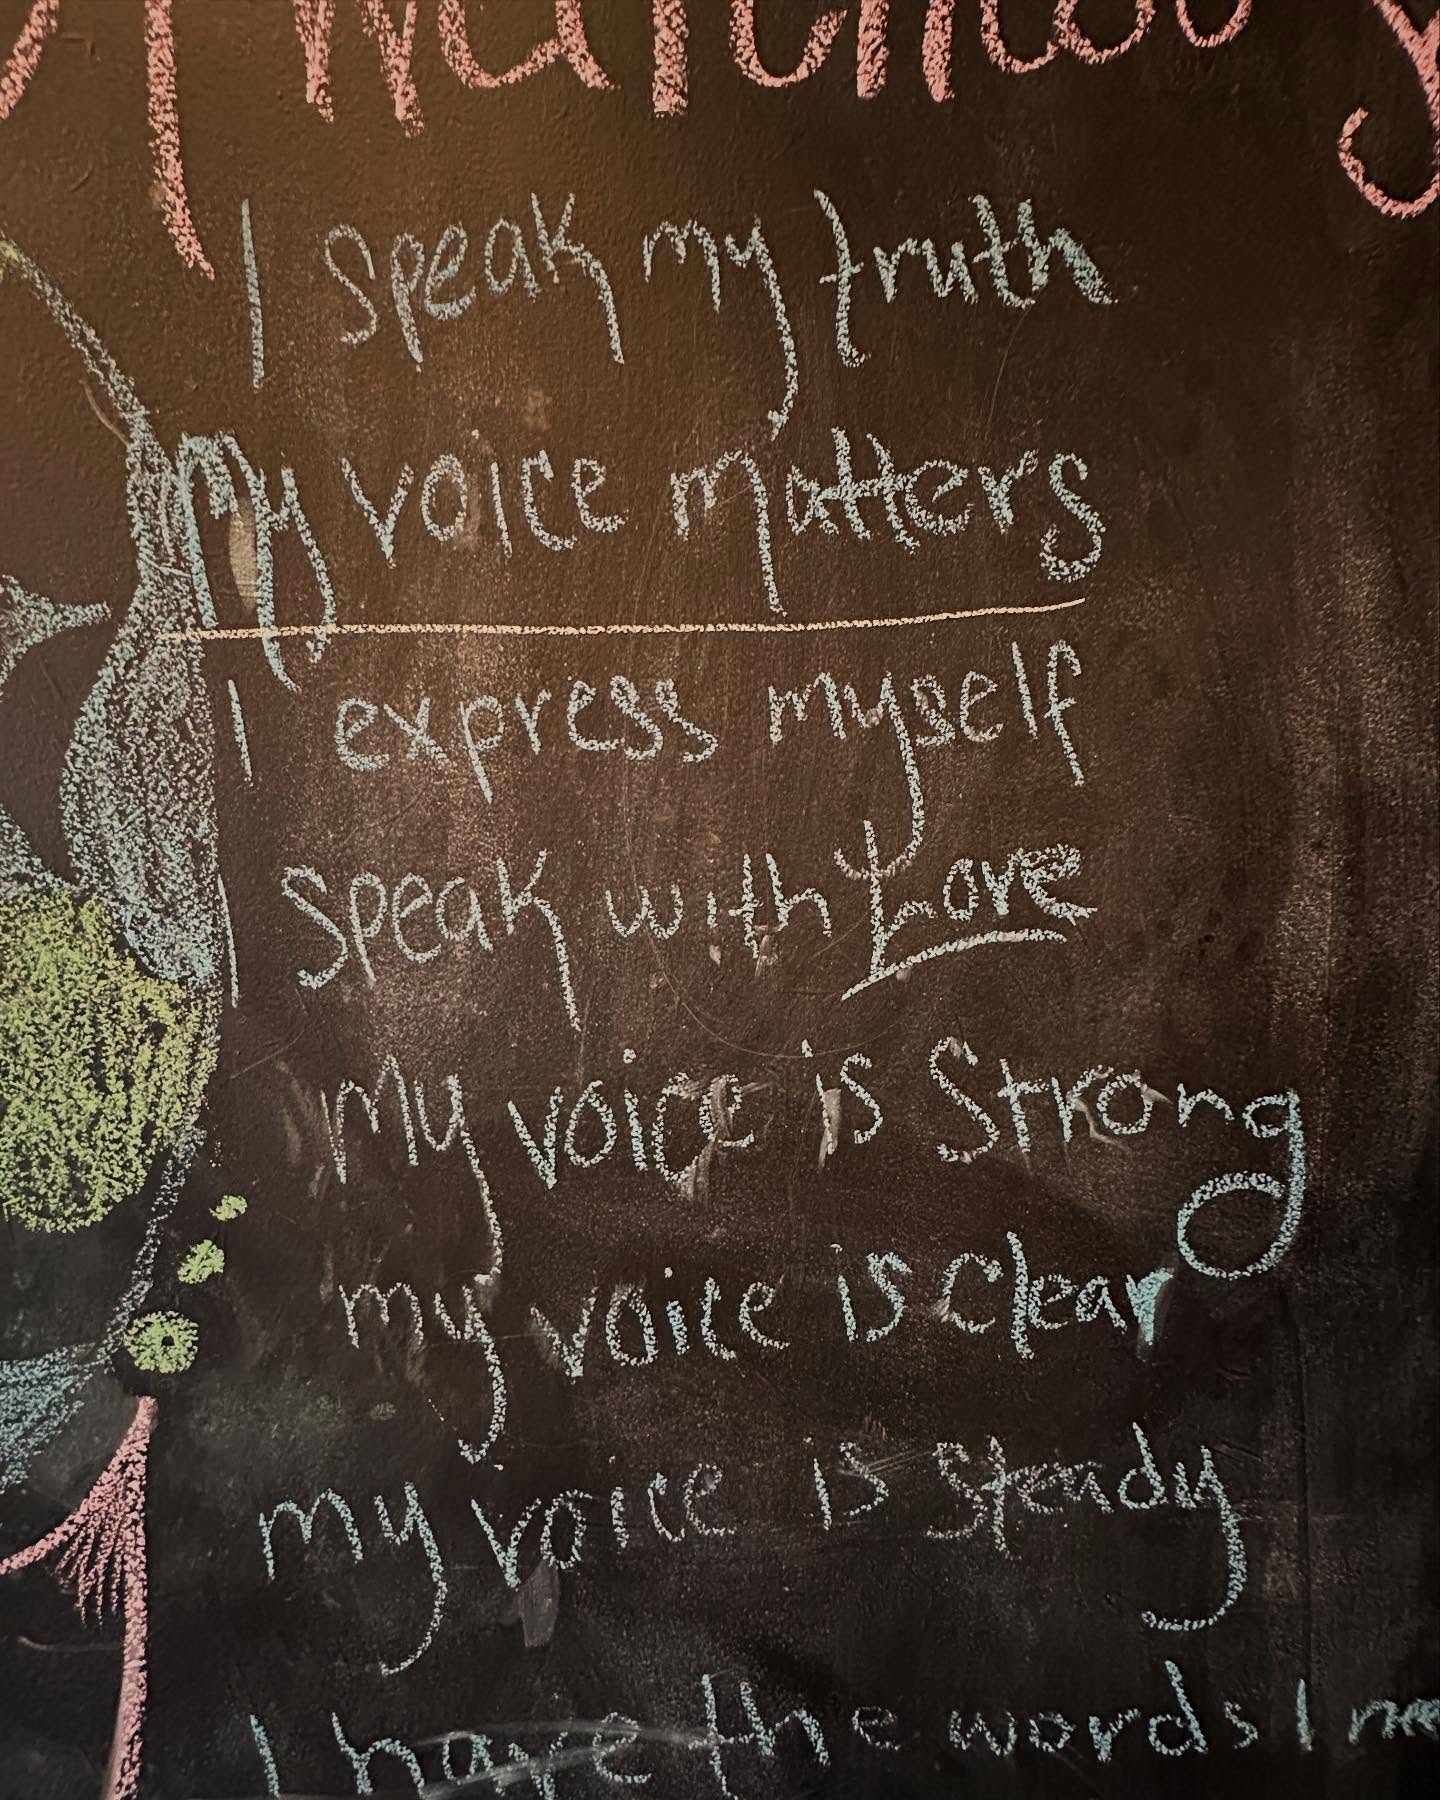 I speak my truth
My voice matters
I express myself
I speak with Love
My voice is Strong
my voice is clear
my voice is steady
I have the words I